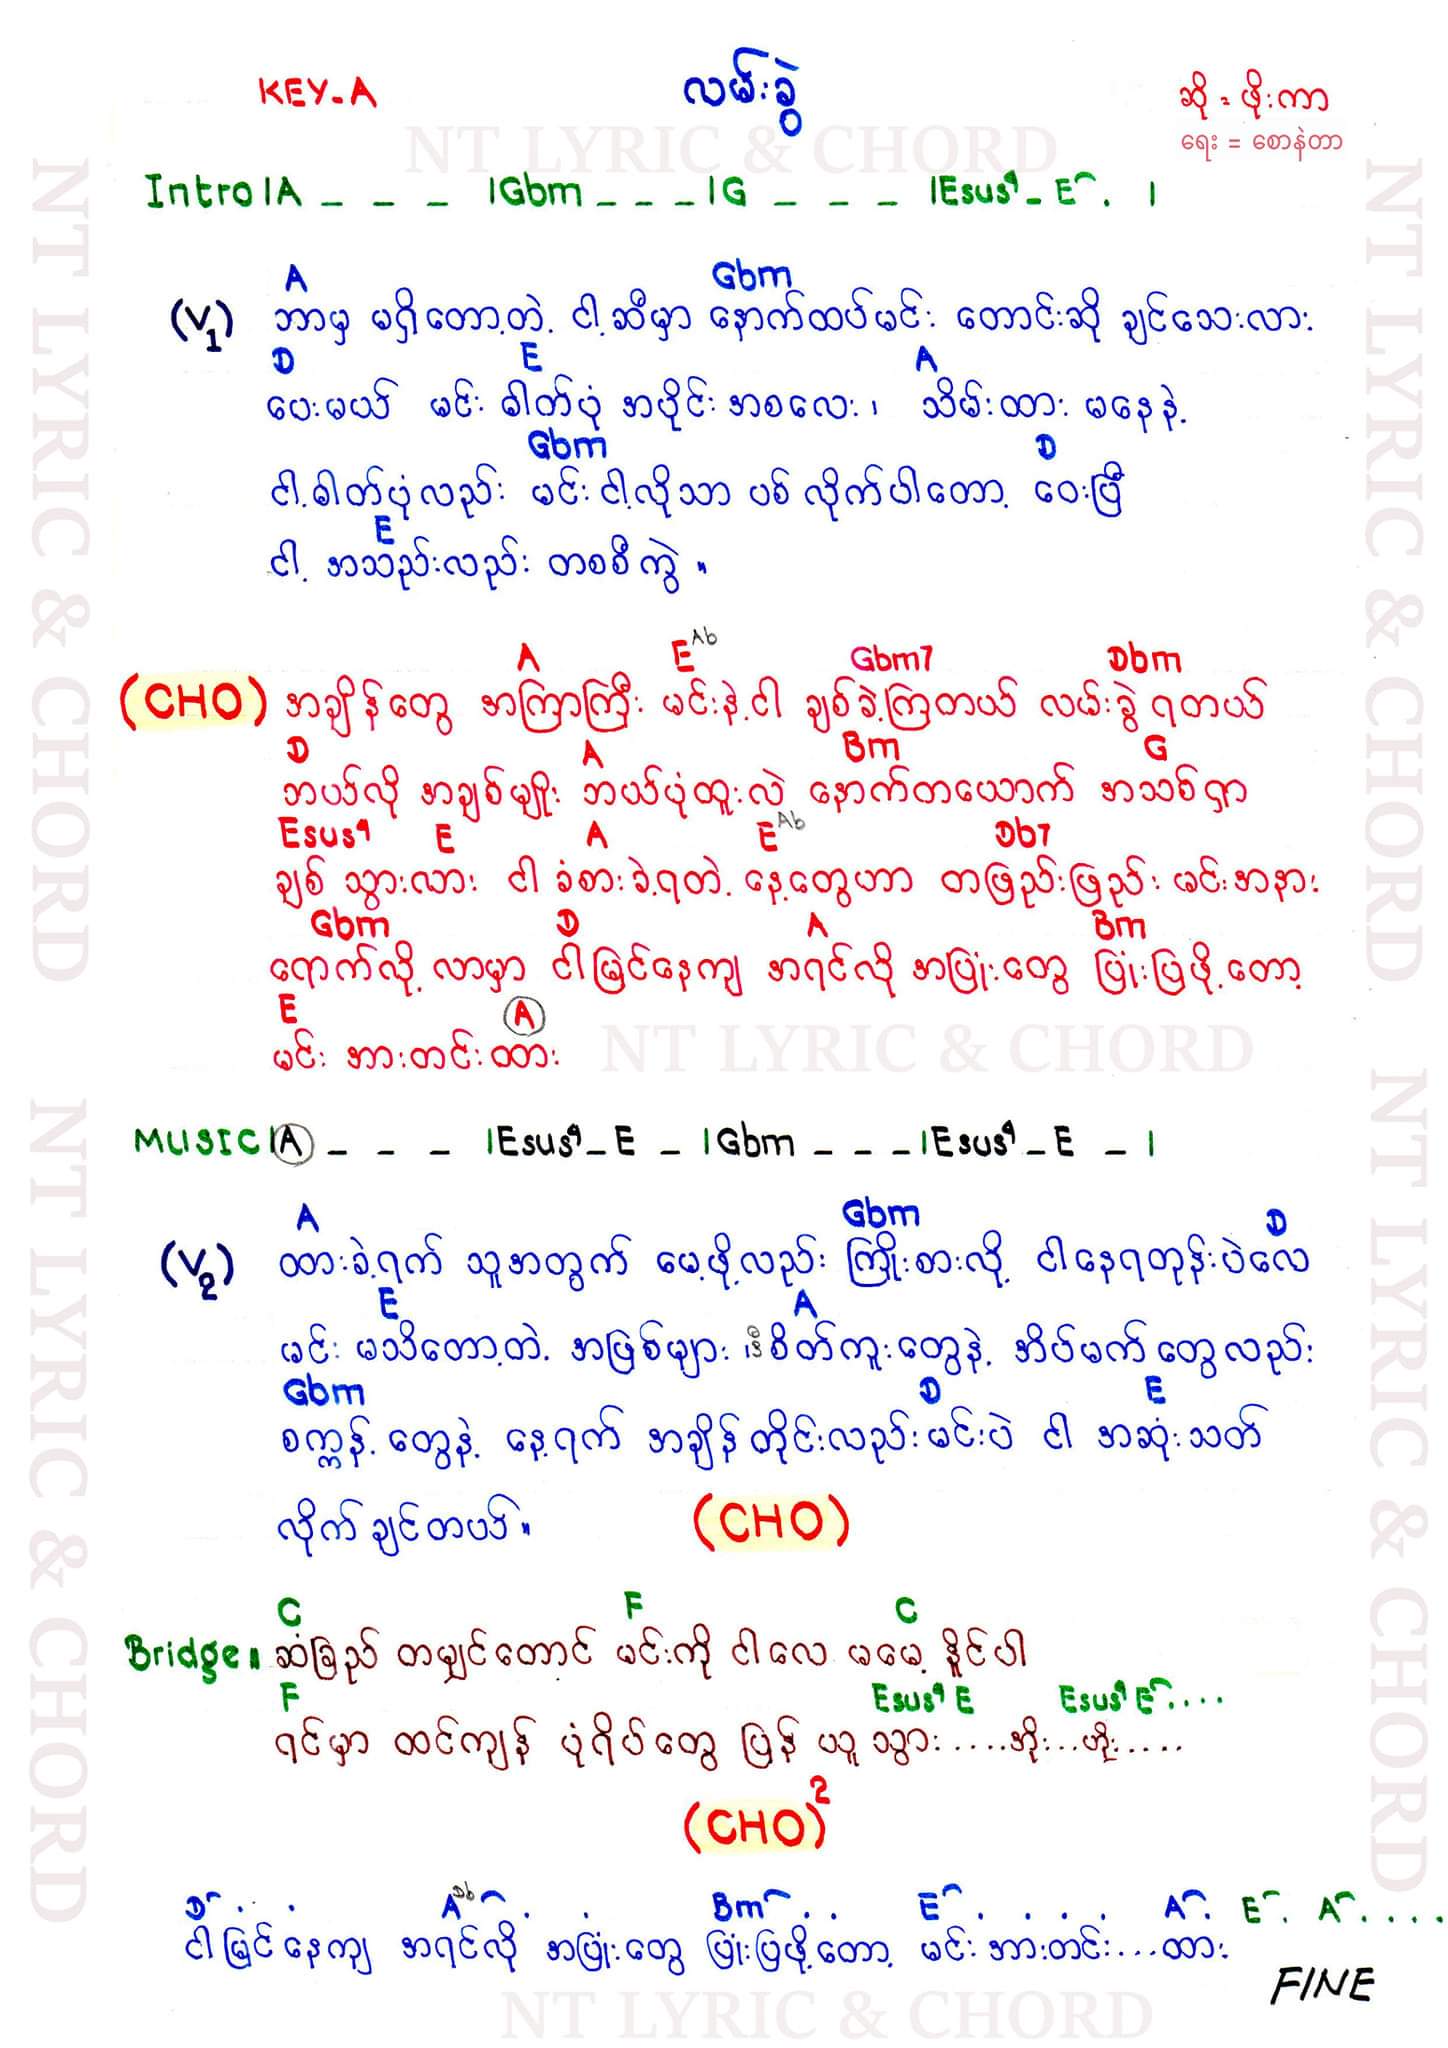 KEY-A
လမ်းခွဲ
ဆို = ဖိုးကာ
ရေး = စောနဲတာ
NT LYRIC & CHORD
Intro |A _ _ _ |Gbm _ _ _ |G _ _ _ |Esus4 _ E . |
A Gbm
(V1) ဘာမှ မရှိတော့တဲ့ ငါ့ဆီမှာ နောက်ထပ်မင်း တောင်းဆို ချင်သေးလား
D E A
ပေးမယ် မင်း ဓါတ်ပုံ အပိုင်းအစလေး၊ သိမ်းထား မနေနဲ့
Gbm D
ငါ့ဓါတ်ပုံလည်း မင်း ငါ့လိုသာ ပစ်လိုက်ပါတော့ ဝေးပြီ
E
ငါ့ အသည်းလည်း တစစီကွဲ။
A E Ab Gbm7 Dbm
(CHO) အချိန်တွေ အကြာကြီး မင်းနဲ့ငါ ချစ်ခဲ့ကြတယ် လမ်းခွဲရတယ်
D A Bm G
ဘယ်လို အချစ်မျိုး ဘယ်ပုံထူးလဲ နောက်တယောက် အသစ်ရှာ
Esus4 E A E Ab Db7
ချစ် သွားလား ငါ ခံစားခဲ့ရတဲ့ နေ့တွေဟာ တဖြည်းဖြည်း မင်းအနား
Gbm D A Bm
ရောက်လို့ လာမှာ ငါမြင်နေကျ အရင်လို အပြုံးတွေ ပြုံးပြဖို့တော့
E A
မင်း အားတင်းထား
NT LYRIC & CHORD
MUSIC |A _ _ _ |Esus4 _ E _ |Gbm _ _ _ |Esus4 _ E _ |
A Gbm D
(V2) ထားခဲ့ရက် သူ့အတွက် မေ့ဖို့လည်း ကြိုးစားလို့ ငါနေရတုန်းပဲလေ
E A
မင်း မသိတော့တဲ့ အဖြစ်များ ၊ဒီစိတ်ကူးတွေနဲ့ အိပ်မက်တွေလည်း
Gbm D E
စက္ကန့်တွေနဲ့ နေ့ရက် အချိန်တိုင်းလည်း မင်းပဲ ငါ အဆုံးသတ်
လိုက်ချင်တယ်။ (CHO)
C F C
Bridge။ ဆံခြည် တမျှင်တောင် မင်းကို ငါလေ မမေ့နိူင်ပါ
F Esus4 E Esus4 E ....
ရင်မှာ ထင်ကျန် ပုံရိပ်တွေ ပြန် ယူသွား.....အိုး...ဟိုး.....
(CHO)2
D . . A Db . . Bm . . E . . . . . A . E . A ....
ငါမြင်နေကျ အရင်လို အပြုံးတွေ ပြုံးပြဖို့တော့ မင်း အားတင်း...ထား
FINE
NT LYRIC & CHORD
NT LYRIC & CHORD
NT LYRIC & CHORD
NT LYRIC & CHORD
NT LYRIC & CHORD